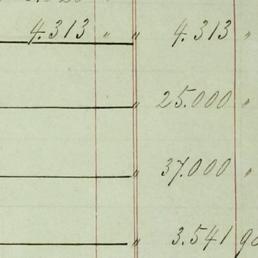 4.313 " " 4.313 "
" 25.000 "
" 37.000 "
" 3.541 90